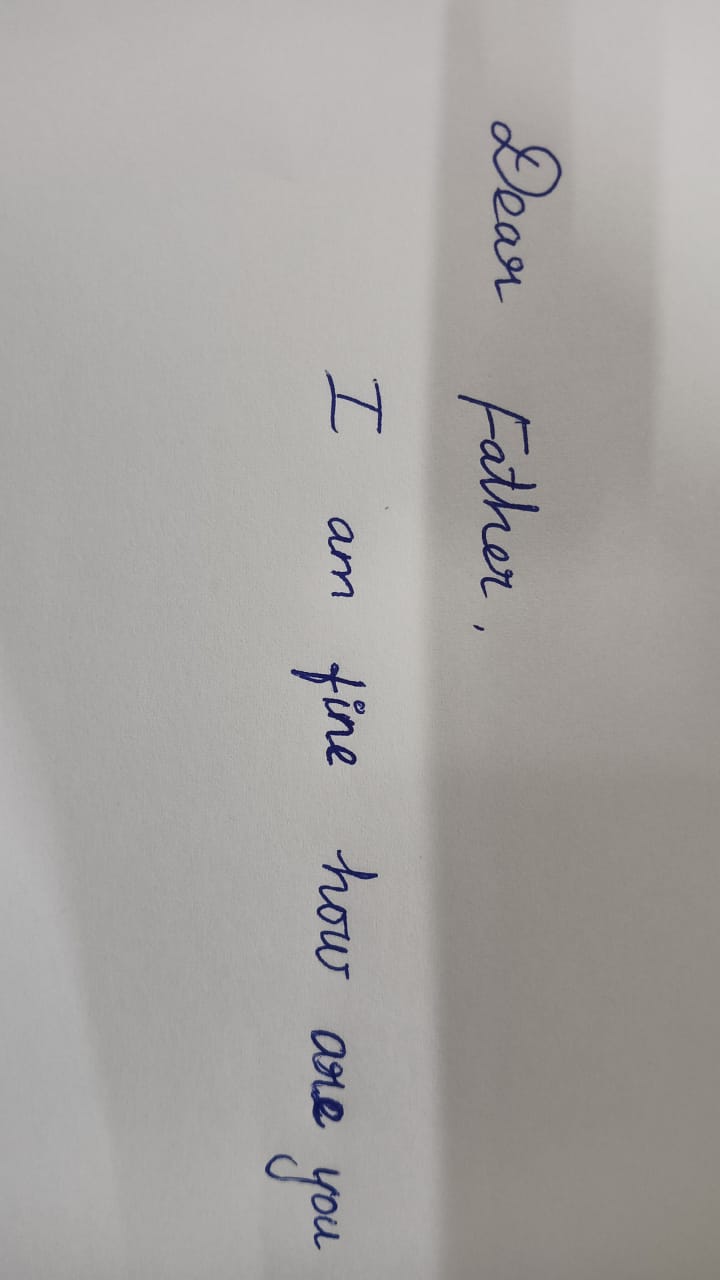 Dear Father,
I am fine how are you